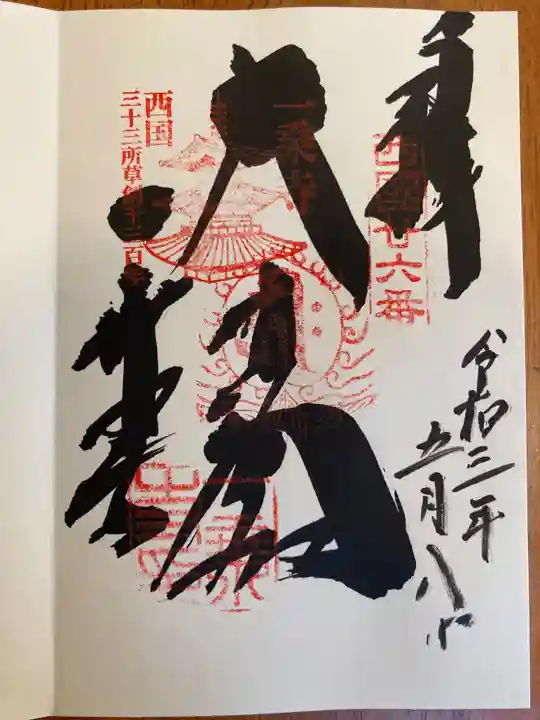 奉拝
西国廿六番
令和三年
五月八日
大悲閣
一乗寺
一乗寺
西国
三十三所草創千三百年